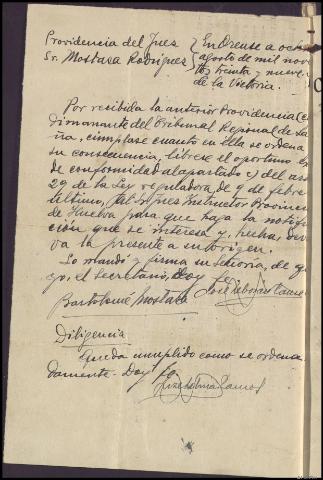 Providencia del Juez
Sr. Mostaza Rodriguez
En Orense a ocho
agosto de mil nove
tos treinta y nueve.
de la Victoria.
Por recibida la anterior Providencia
dimanante del Tribunal Regional de La
ña, cúmplase cuanto en ella se ordena
su consecuencia, líbrese el oportuno
de conformidad al apartado c) del
29 de la Ley reguladora de 9 de febre
último, al Juez Instructor Provinci
de Huelva para que haga la notifi
ción que se interesa y, hecha, dev
va la presente a su origen.
Lo mandó y firma su Señoría, de que
yo, el secretario, Doy fe.
Bartolomé Mostaza
Diligencia
Queda cumplido como se ordena
damente. Doy fe